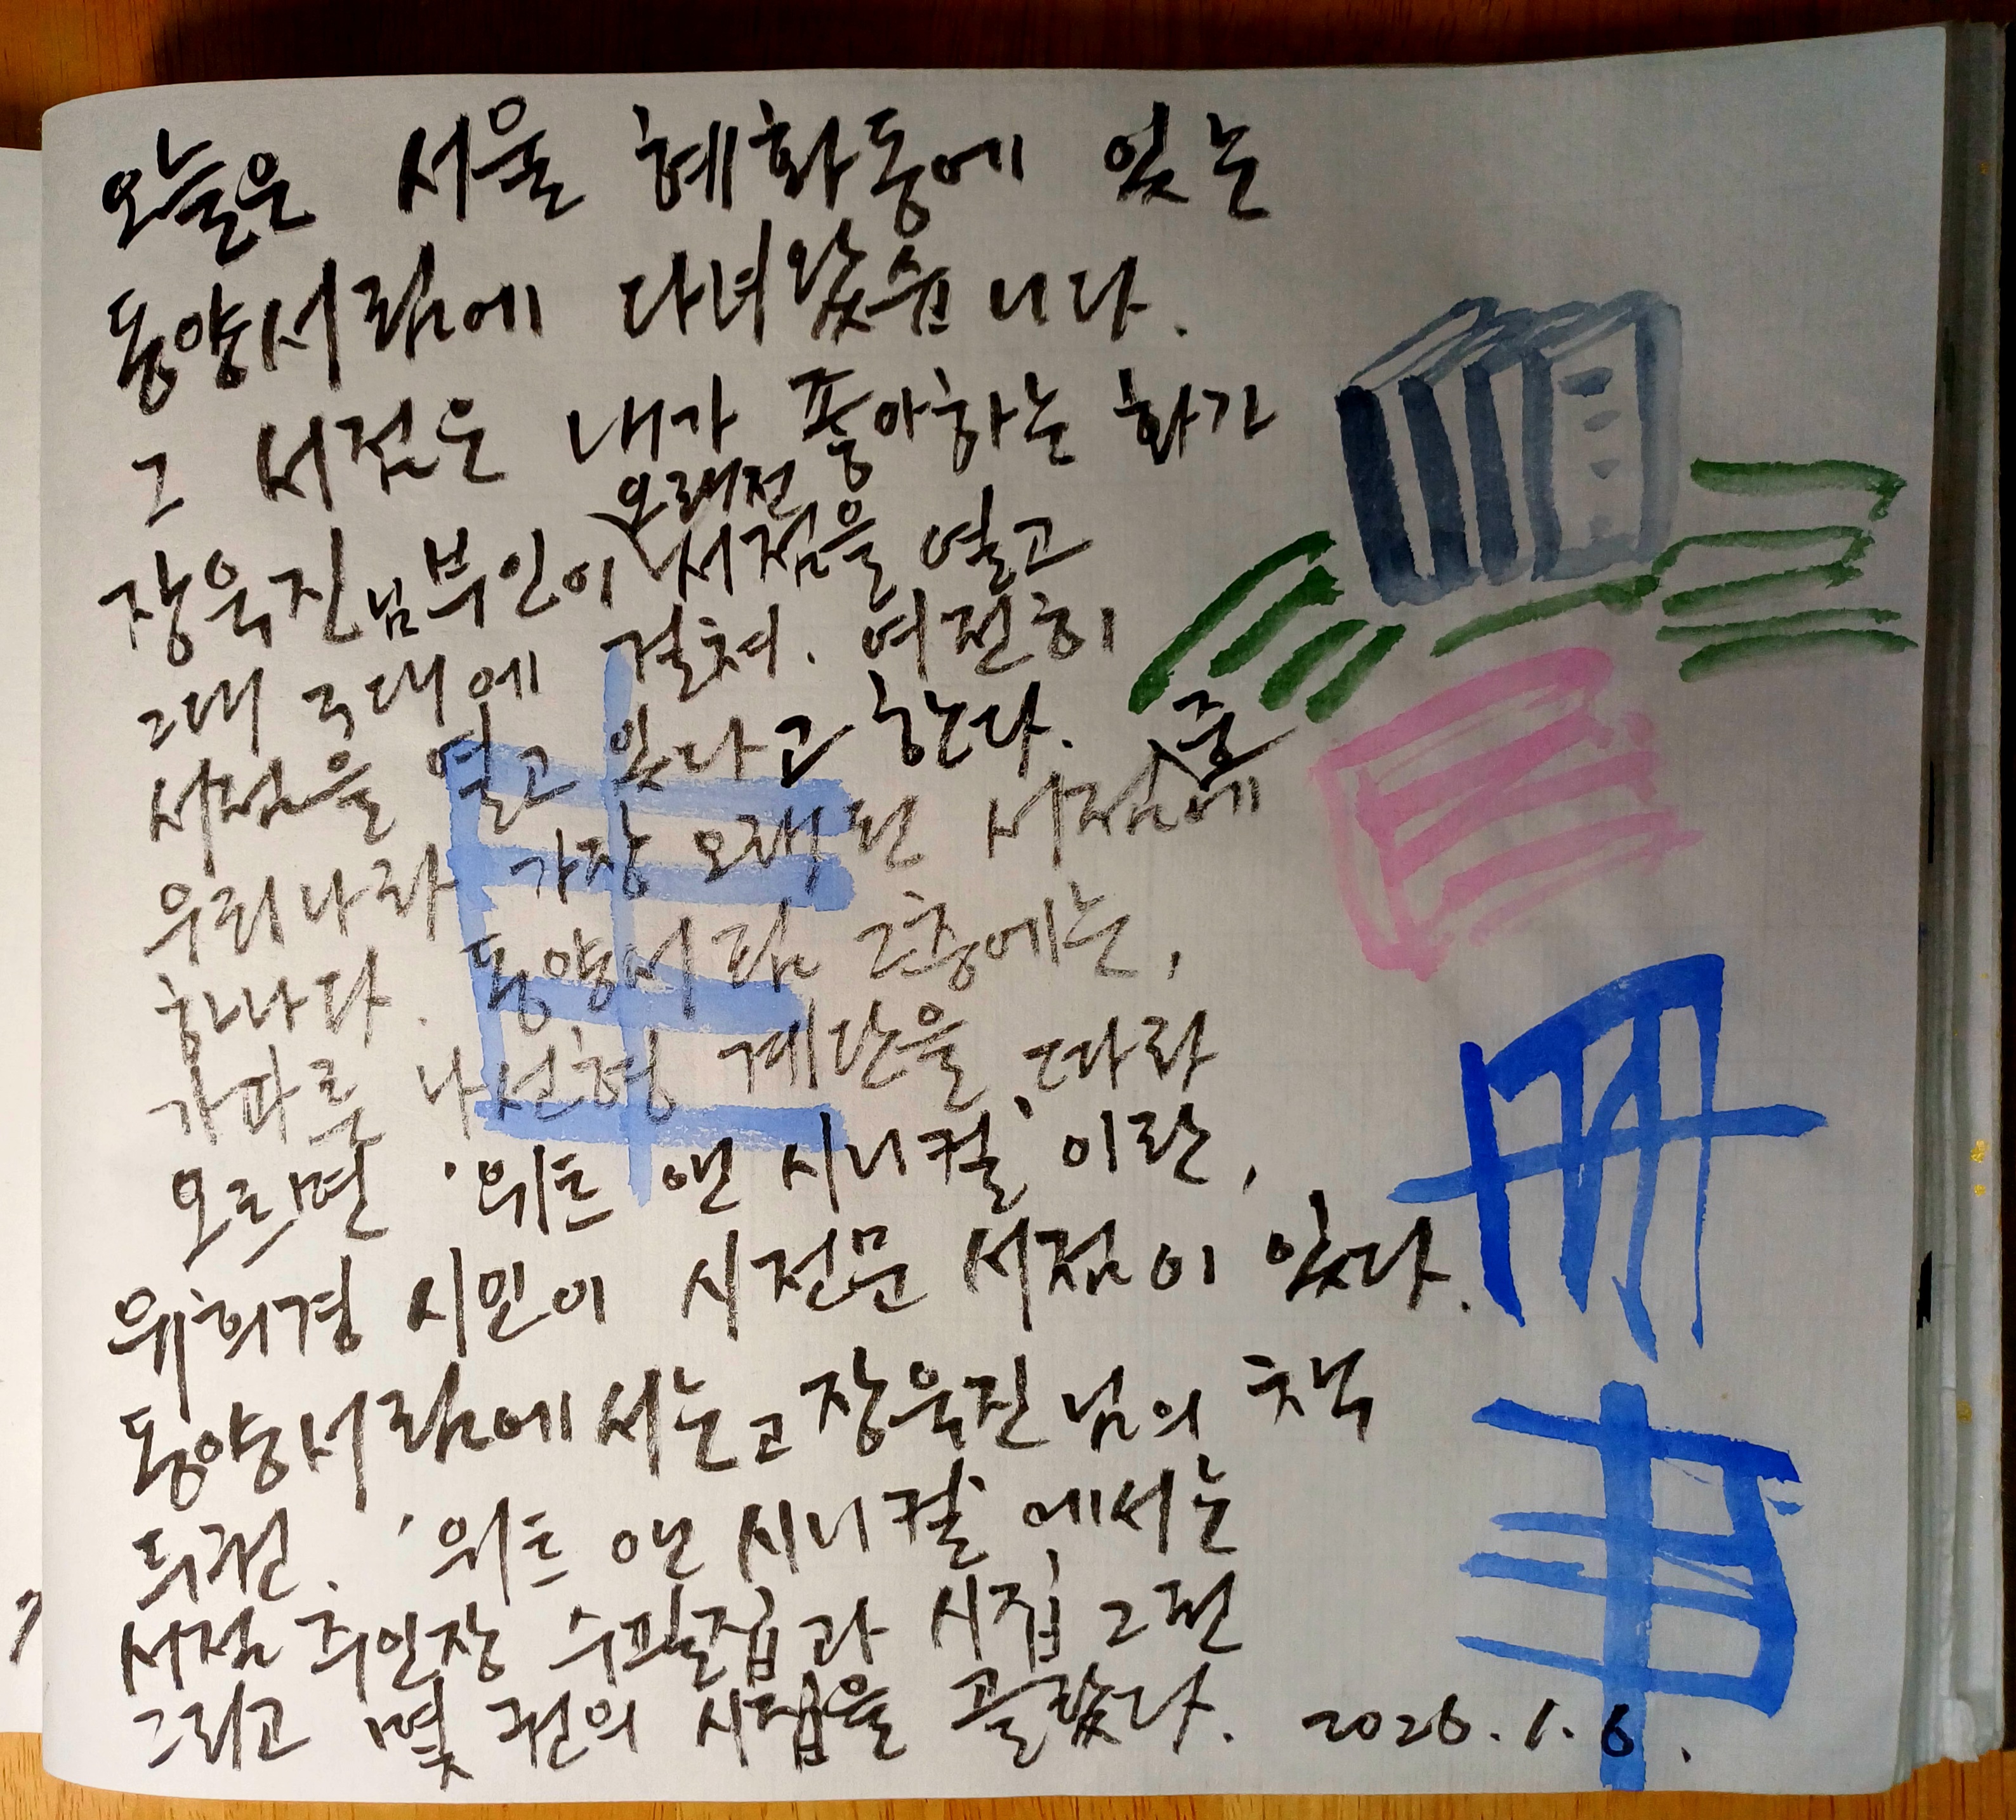 오늘은 서울 혜화동에 있는
동양서림에 다녀왔습니다.
그 서점은 내가 좋아하는 화가
오래전
장욱진님 부인이 서점을 열고
2대 3대에 걸쳐. 여전히
서점을 열고 있다고 한다.
중
우리나라 가장 오래된 서점에
하나다. 동양서림 2층에는,
가파른 나선형 계단을 따라
오르면 '위트 앤 시니컬' 이란,
위희경 시인이 시전문 서점이 있다.
동양서림에서는 고 장욱진 님의 책
두권. '위트 앤 시니컬' 에서는
서점 주인장 수필집과 시집 2권
그리고 몇 권의 시집을 골랐다. 2026.1.6.
冊